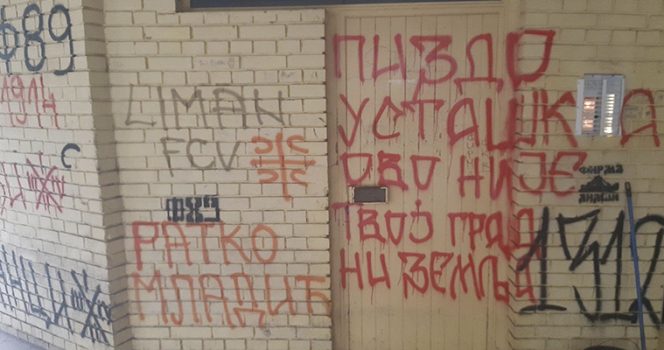 Ф89
1914
LIMAN
FCV
Ф89
РАТКО
МЛАДИЋ
ПИЗДО
УСТАШКА
ОВО НИЈЕ
ТВОЈ ГРАД
НИ ЗЕМЉА
ФИРМА
1312